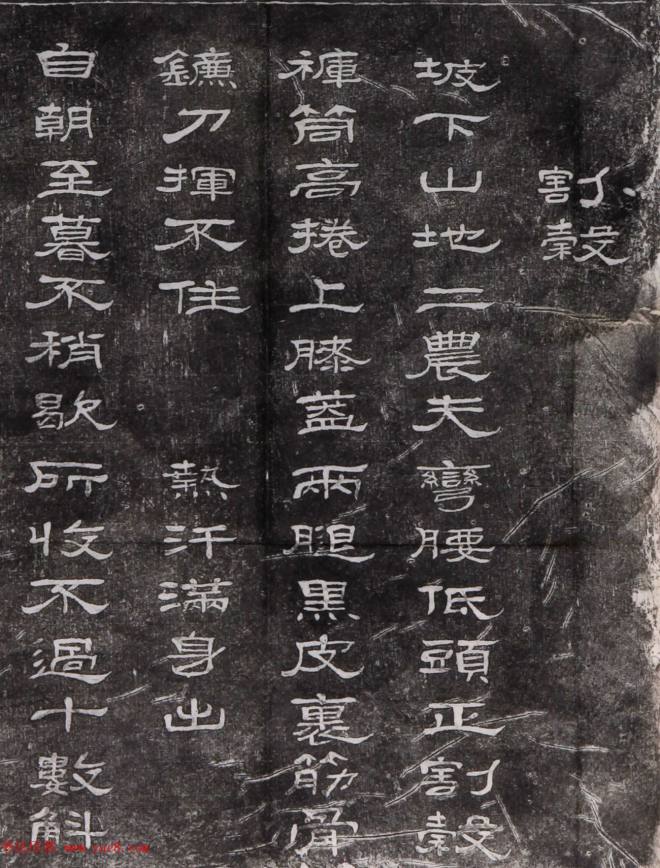 割穀
坡下山地二農夫彎腰低頭正割穀
褲筒高捲上膝蓋兩腿黑皮裹筋骨
鐮刀揮不住 熱汗滿身出
自朝至暮不稍歇所收不過十數斛
www.yac8.com